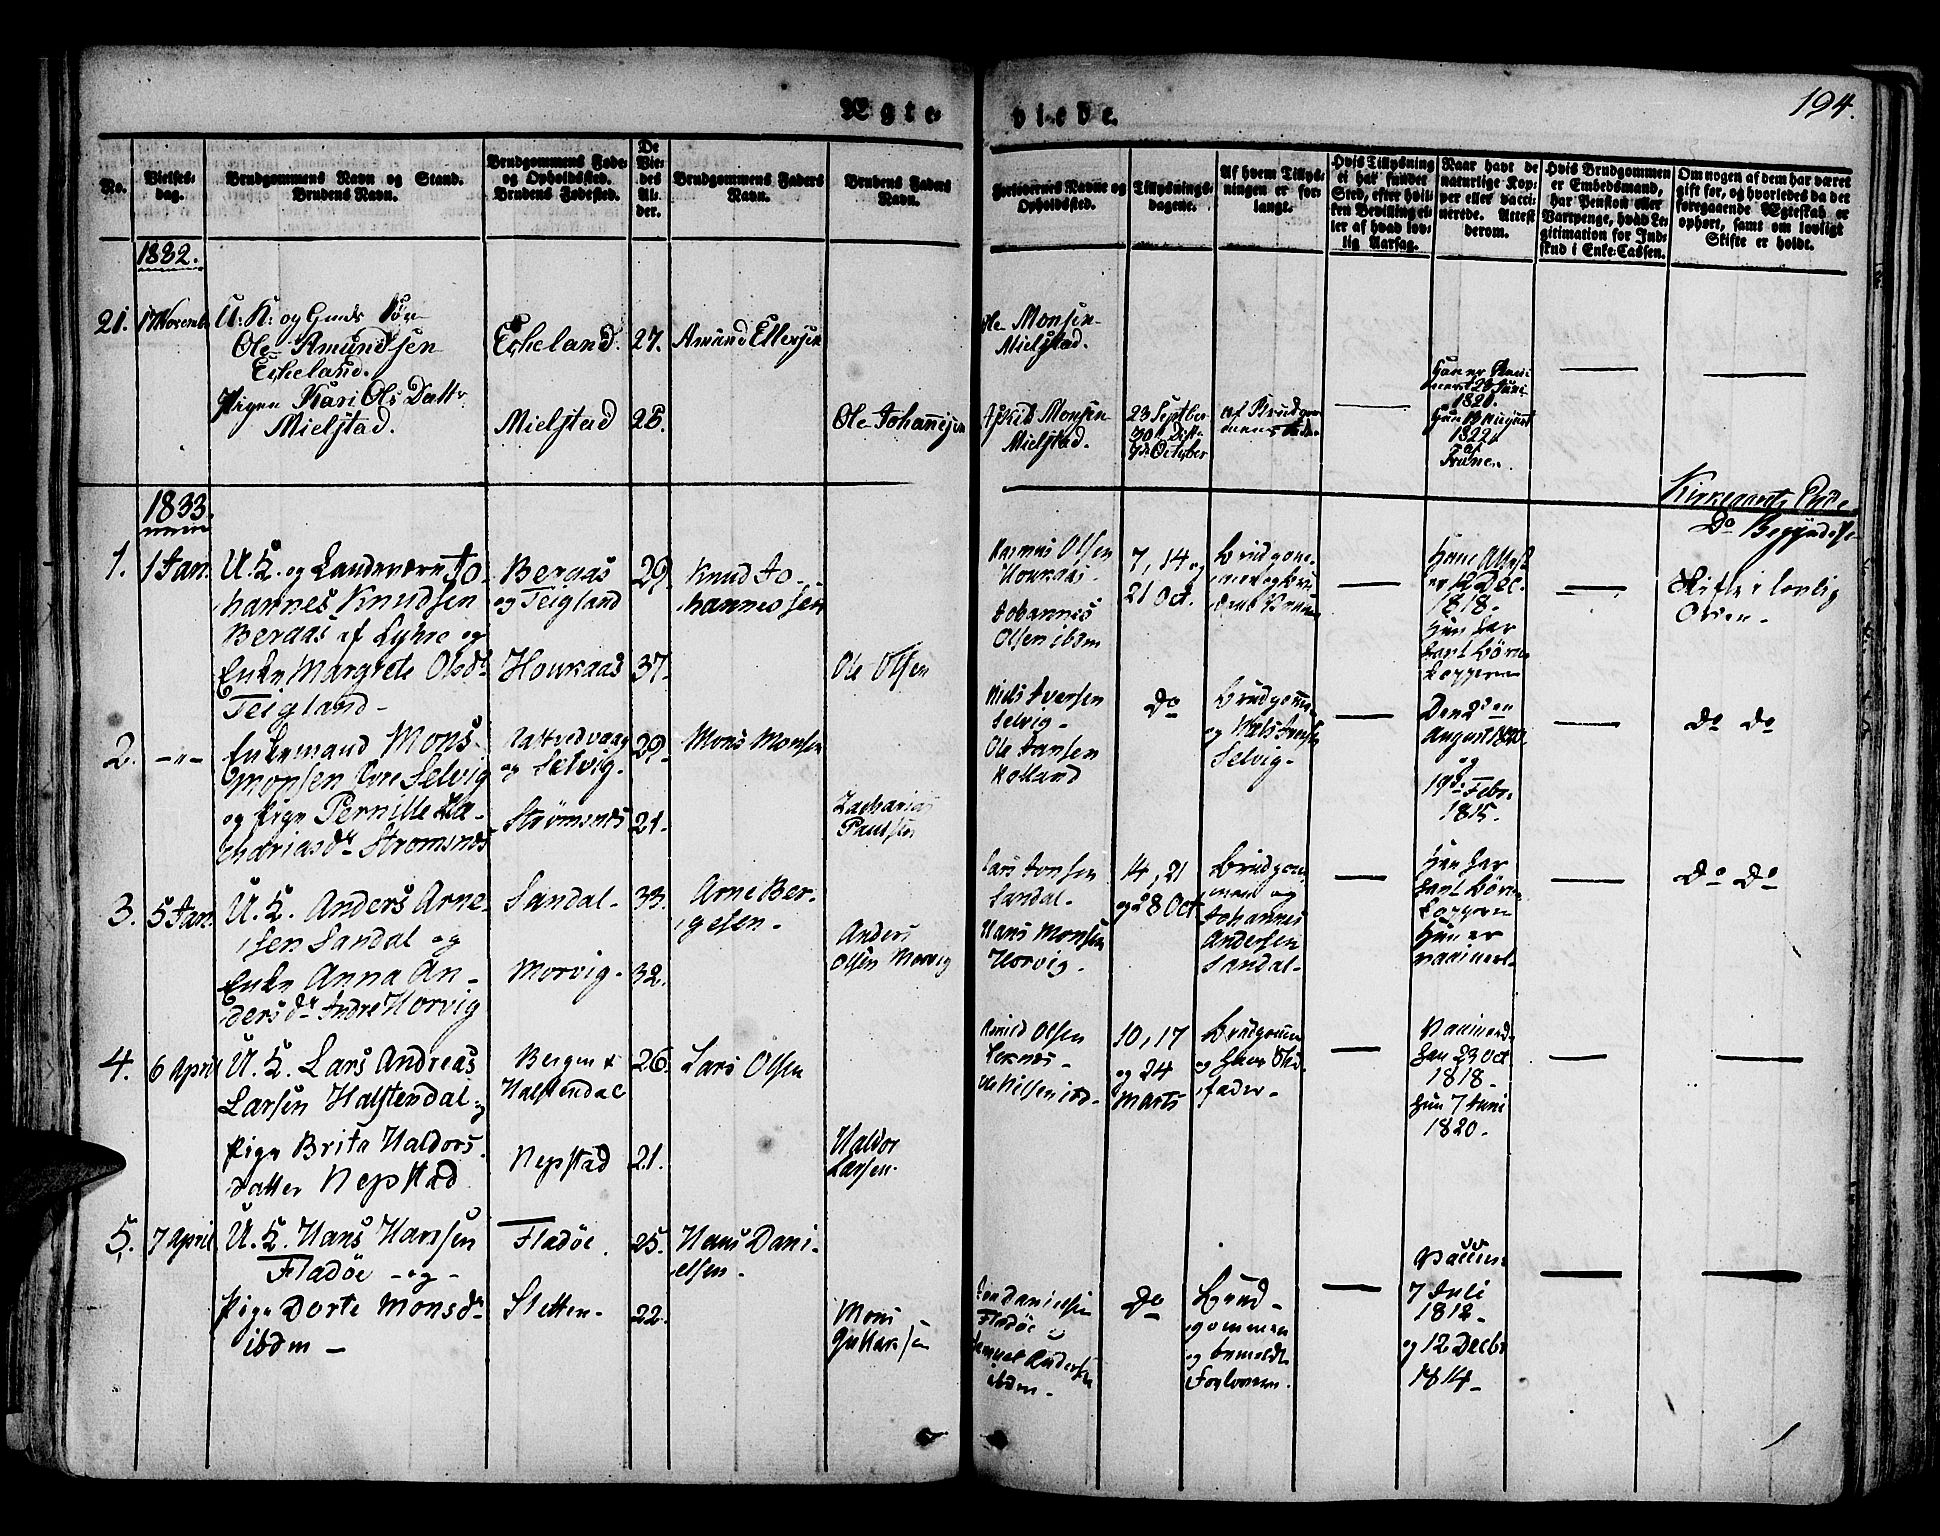 Ægte
viede.
194.
No.
Vielses-
dag.
Brudgommens Navn og Stand.
Brudens Navn.
Brudgommens Føde-
og Opholdssted.
Brudens Fødested.
De
Vie-
des
Al-
der.
Brudgommens Faders
Navn.
Brudens Faders
Navn.
Forlovernes Navne og
Opholdssted.
Tillysnings-
dagene.
Af hvem Tillys-
ningen er for-
langt.
Hvis Tillysning
ei har fundet
Sted, efter hvil-
ken Bevilling el-
ler af hvad lov-
lig Aarsag.
Naar havt de
naturlige Kop-
per eller vacci-
nerede. Attest
derom.
Hvis Brudgommen
er Embedsmand,
har Pension eller
Vartpenge, hvad Le-
gitimation for Ind-
skud i Enke-Cassen.
Om nogen af dem har været
gift før, og hvorledes da det
foregaaende Ægteskab er
ophørt, samt om lovligt
Skifte er holdt.
1832.
21. 17 Novemb
U. K: og Gaards Søn
Ole Amundsen
Eikeland.
Eikeland. 27. Amund Ellersen
Ole Monsen
Mielstad.
Pigen Kari Ols Dattr
Mielstad.
Mielstad 28. Ole Johannesen
Monsen
Mielstad.
23 Septber
30te Dito
7de October
af Brudgom-
mens
Han er
29 Juni
1820.
Hun 13 August
1822
af
1833.
Kirkegaards
Do Begyndelse
1. 1 Jan.
U. K. og Landeværn Jo-
hannes Knudsen
Beraas af Lykre og
Enke Margrete Olsdr
Teigland -
Beraas
og Teigland
29. Knud Jo-
hannessen
Houkaas 37. Ole Olsen
Rasmus Olsen
Houkaas.
Johannes
Olsen ibdm
7, 14 og
21 Oct.
Brudgom-
men og Bru-
dens
Hans Attest
er 12 Dec.
1818.
Hun har
havt Børne
Kopperne
Skifte i lovlig
Orden -
2. - " -
Enkemand Mons
Monsen Øvre Selvig
og Pige Pernille Za-
chariasdr Strømsnes
og Selvig.
29. Mons Monsen
Strømsnes 21. Zacharias
Paulsen
Niels Iversen
Selvig -
Ole Jansen
Kolland
Do
Brudgommen
og Niels Iversen
Selvig -
Den 2den
August 1820.
og
19de Febr.
1815.
Do Do
3. 5 Jan.
U. K. Anders Arne-
sen Sandal og
Enke Anna An-
dersdr Indre Horvig
Sandal - 33. Arne Ber-
gesen -
Morvig - 32. Anders
Olsen Morvig
Lars Jonsen
Sandal -
Hans Monsen
Horvig -
14, 21
og 28 Oct
Brudgom-
men og
Johannes
Andersen
Sandal -
Han har
havt Børne
Kopperne
Hun er
vaccinert.
Do Do
4. 6 April
U. K. Lars Andreas
Larsen Halstendal og
Pige Brita Haldors
datter Nepstad
Bergen &
Halstendal
26. Lars Olsen
Nepstad 21. Haldor
Larsen.
Olsen
10, 17
og 24
Marts
Brudgommen
og
fader -
Vaccinerd
Han 29 Oct
1818 -
Hun 7 Juni
1820 -
5. 7 April
U. K. Hans Hansen
Fladöe - og -
Pige Dorte Monsdr
ibdm -
Fladöe. 25. Hans Dani-
elsen -
Sletten - 22. Mons
Danielsen
Fladöe
Samuel Andersen
ibdm -
Do
Brud-
gommen
og bemeldte
Forlovere.
Vaccin.
7 Juli
1812
og 12 Decbr
1814 -